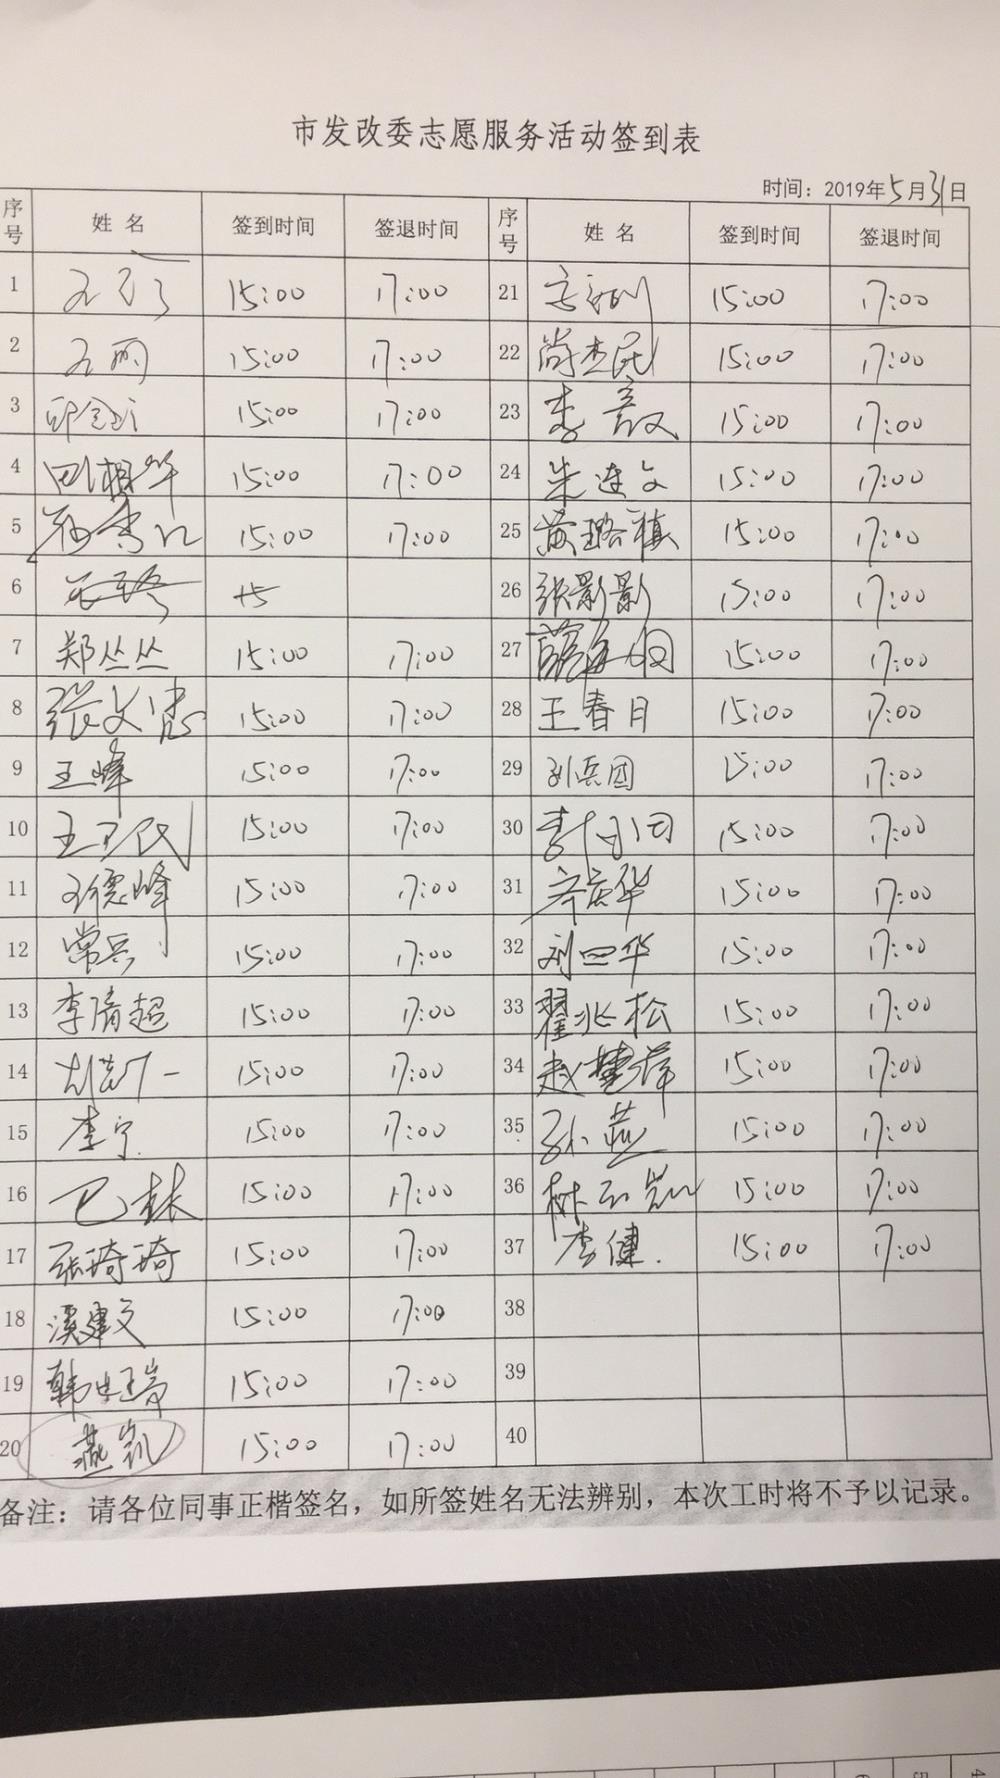 市发改委志愿服务活动签到表
时间：2019年5月31日
序号 姓名 签到时间 签退时间 序号 姓名 签到时间 签退时间
1 15:00 17:00 21 15:00 17:00
2 15:00 17:00 22 尚杰民 15:00 17:00
3 15:00 17:00 23 李 15:00 17:00
4 田相华 15:00 17:00 24 朱连文 15:00 17:00
5 15:00 17:00 25 黄璐禛 15:00 17:00
6 15 26 张影影 15:00 17:00
7 郑丛丛 15:00 17:00 27 15:00 17:00
8 张文忠 15:00 17:00 28 王春月 15:00 17:00
9 王峰 15:00 17:00 29 刘兵团 15:00 17:00
10 王卫民 15:00 17:00 30 李 15:00 17:00
11 德峰 15:00 17:00 31 15:00 17:00
12 常兵 15:00 17:00 32 刘四华 15:00 17:00
13 李清超 15:00 17:00 33 翟兆松 15:00 17:00
14 15:00 17:00 34 赵楚萍 15:00 17:00
15 李宁 15:00 17:00 35 孙燕 15:00 17:00
16 15:00 17:00 36 15:00 17:00
17 张琦琦 15:00 17:00 37 李健 15:00 17:00
18 溪建文 15:00 17:00 38
19 韩 15:00 17:00 39
20 燕凯 15:00 17:00 40
备注：请各位同事正楷签名，如所签姓名无法辨别，本次工时将不予以记录。